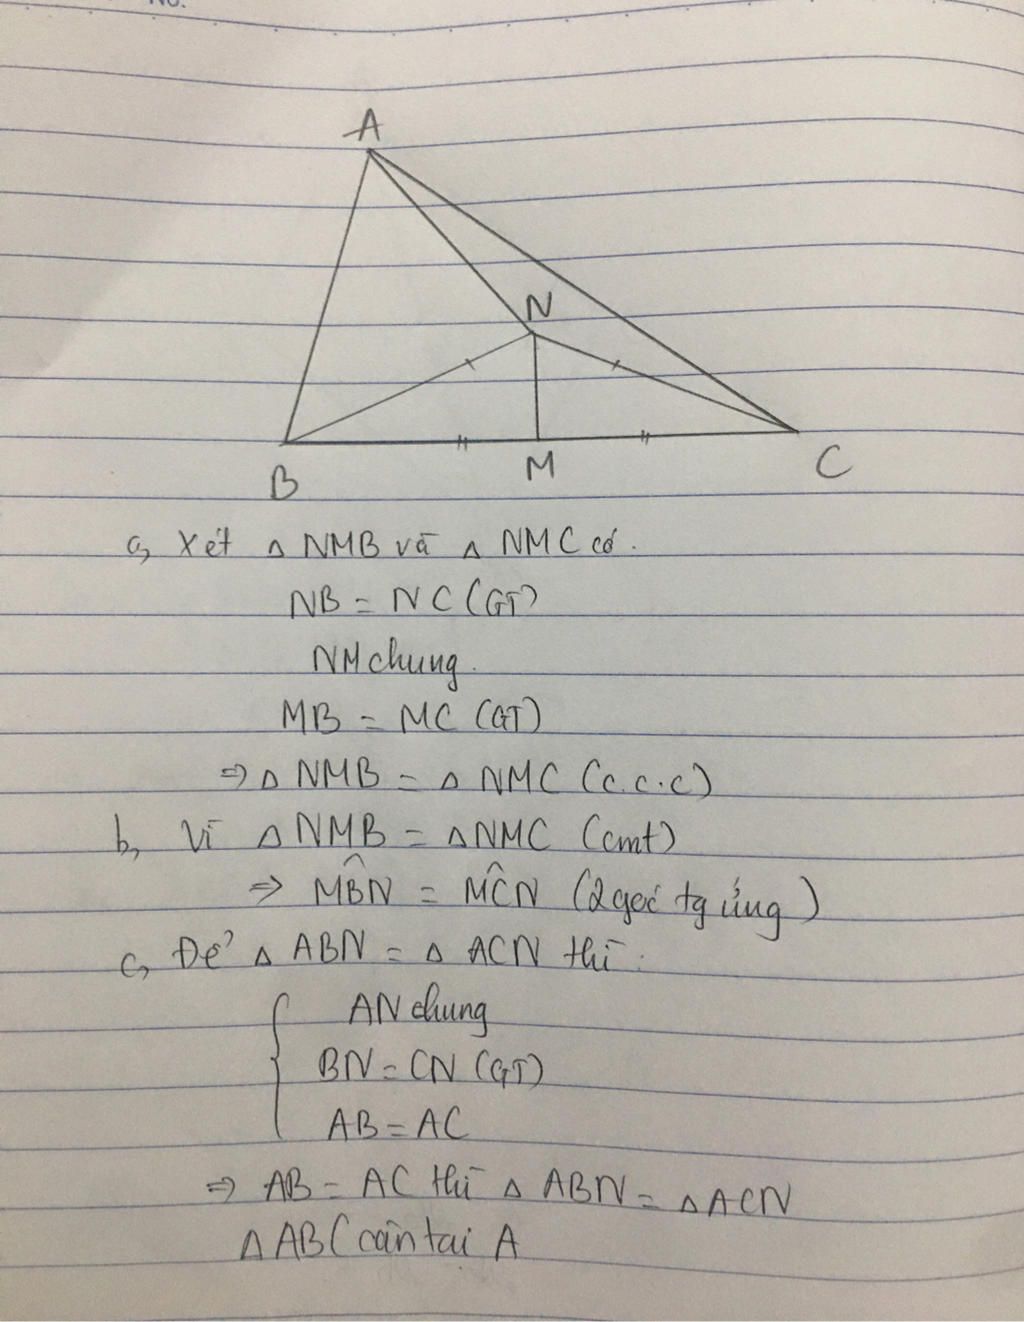 No.
A
N
B
M
C
a, Xét △ NMB và △ NMC có.
NB = NC (GT)
NM chung.
MB = MC (GT)
⇒ △ NMB = △ NMC (c.c.c)
b, Vì △ NMB = △ NMC (cmt)
⇒ MB̂N = MĈN (2 góc tg ứng)
c, Để △ ABN = △ ACN thì:
AN chung
BN = CN (GT)
AB = AC
⇒ AB = AC thì △ ABN = △ ACN
△ ABC cân tại A